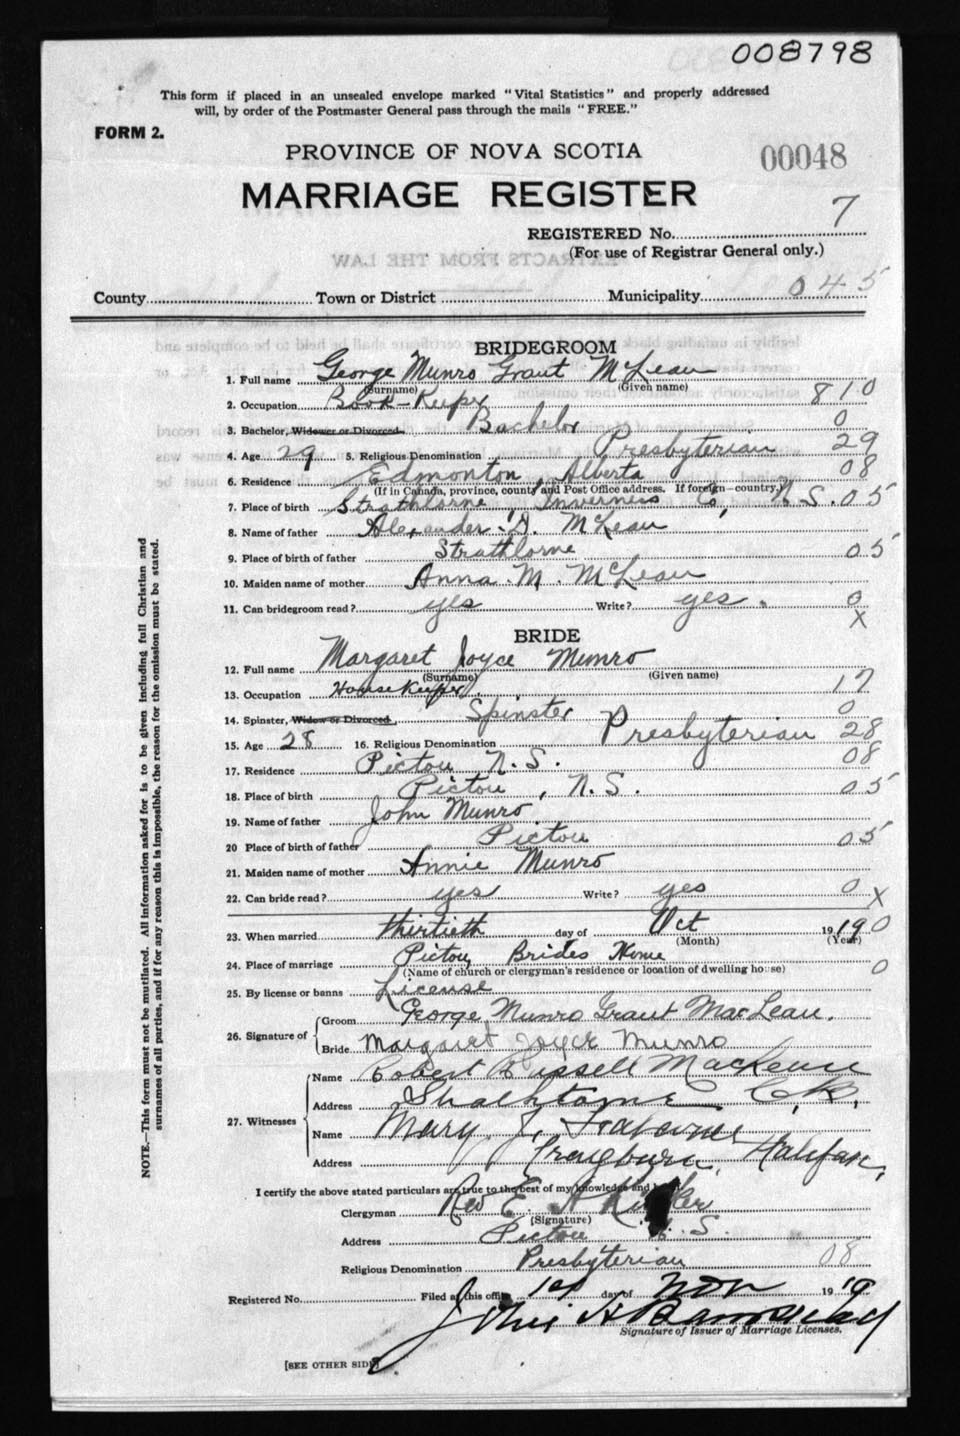 008798
This form if placed in an unsealed envelope marked "Vital Statistics" and properly addressed
will, by order of the Postmaster General pass through the mails "FREE."
FORM 2.
PROVINCE OF NOVA SCOTIA
00048
MARRIAGE REGISTER
REGISTERED No. 7
(For use of Registrar General only.)
County Town or District Municipality 045
BRIDEGROOM
1. Full name George Munro Grant McLean
(Surname) (Given name)
2. Occupation Book-Keeper 810
3. Bachelor, Widower or Divorced Bachelor 0
4. Age 29 5. Religious Denomination Presbyterian 29
6. Residence Edmonton, Alberta 08
(If in Canada, province, county and Post Office address. If foreign—country.)
7. Place of birth Strathlorne, Inverness Co, N.S. 05
8. Name of father Alexander D. McLean
9. Place of birth of father Strathlorne 05
10. Maiden name of mother Anna M. McLean
11. Can bridegroom read? yes Write? yes. 0
X
BRIDE
12. Full name Margaret Joyce Munro
(Surname) (Given name)
13. Occupation House Keeper 17
14. Spinster, Widow or Divorced Spinster 0
15. Age 28 16. Religious Denomination Presbyterian 28
17. Residence Pictou N.S. 08
18. Place of birth Pictou, N.S. 05
19. Name of father John Munro
20 Place of birth of father Pictou 05
21. Maiden name of mother Annie Munro
22. Can bride read? yes Write? yes 0 X
23. When married thirtieth day of Oct 1919 0
(Month) (Year)
24. Place of marriage Pictou, Brides Home
(Name of church or clergyman's residence or location of dwelling house) 0
25. By license or banns License
26. Signature of Groom George Munro Grant MacLean.
Bride Margaret Joyce Munro
27. Witnesses
Name Robert Russell MacKenzie
Address Strathlorne C.B.
Name Mary J.
Address Halifax,
I certify the above stated particulars are true to the best of my knowledge and
Clergyman Rev E. A.
(Signature)
Address Pictou N.S.
Religious Denomination Presbyterian 08
Registered No. Filed at this office 1st day of Nov 1919
Signature of Issuer of Marriage Licenses.
[SEE OTHER SIDE]
NOTE.—This form must not be mutilated. All information asked for is to be given including full Christian and
surnames of all parties, and if for any reason this is impossible, the reason for the omission must be stated.